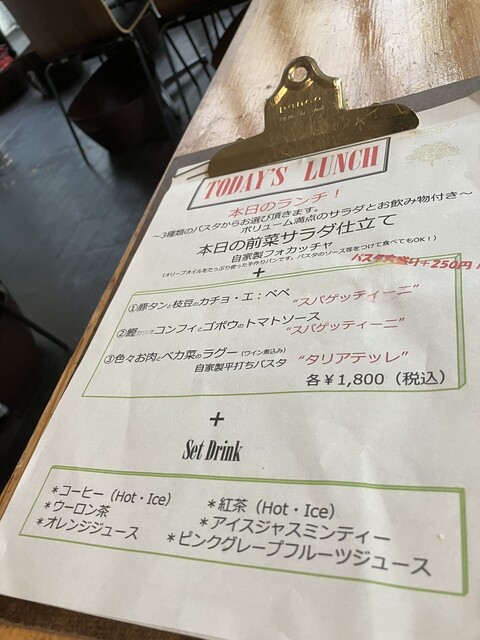 TODAY'S LUNCH
本日のランチ！
～3種類のパスタからお選び頂きます。
ボリューム満点のサラダとお飲み物付き～
本日の前菜サラダ仕立て
自家製フォカッチャ
(オリーブオイルをたっぷり使った手作りパンです。パスタのソース等をつけて食べてもOK！)
+
パスタ大盛り+250円！
①豚タンと枝豆のカチョ・エ：ペペ
"スパゲッティーニ"
②鰹 コンフィとゴボウのトマトソース
"スパゲッティーニ"
③色々お肉とベカ菜のラグー (ワイン煮込み)
自家製平打ちパスタ "タリアテッレ"
各￥1,800（税込）
+
Set Drink
＊コーヒー（Hot・Ice） ＊紅茶（Hot・Ice）
＊ウーロン茶 ＊アイスジャスミンティー
＊オレンジジュース ＊ピンクグレープフルーツジュース